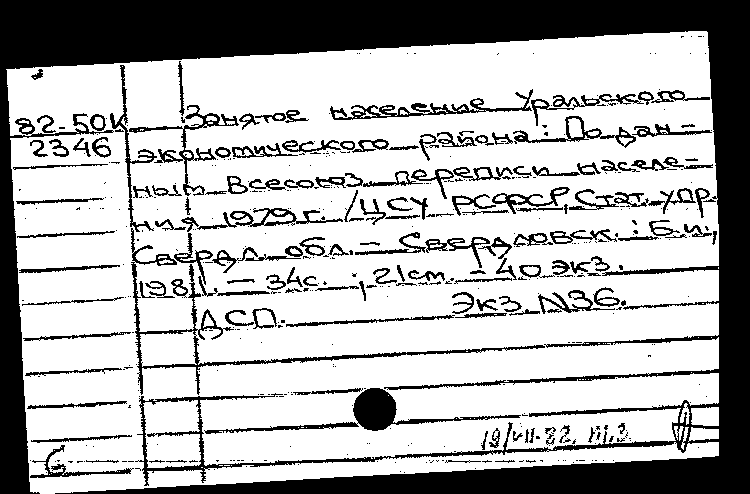 82-50к Занятое население Уральского
2346 экономического района: По дан-
ным Всесоюз. переписи населе-
ния 1979г. /ЦСУ РСФСР, Стат. упр.
Свердл. обл. - Свердловск. : Б.и.,
1981. - 34с. ; 21см. - 40 экз.
ДСП. Экз. N36.
19/VII-82.
G